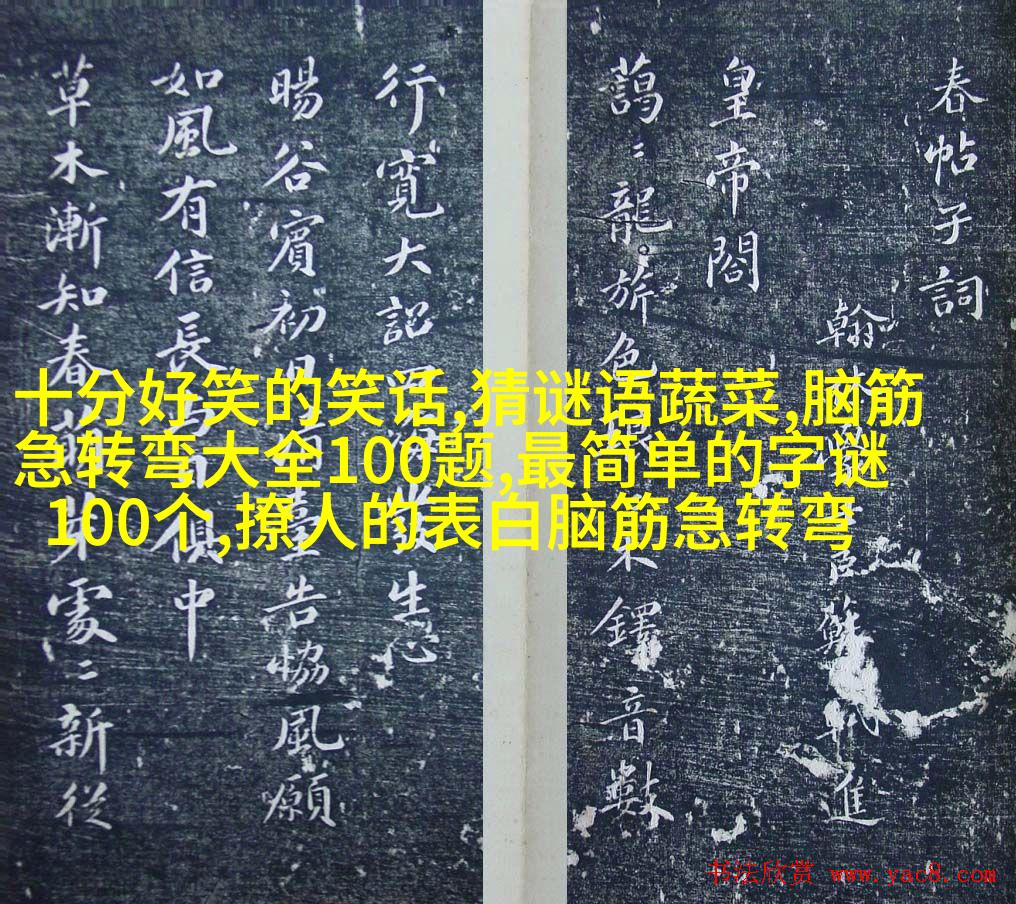 春帖子詞
翰林臣蘇軾進
皇帝閤
藹〻龍旂色木鐸音數
行寬大詔生心
暘谷賓初日臺告協風願
如風有信長與日俱中
草木漸知春處〻新從
十分好笑的笑话,猜谜语蔬菜,脑筋
急转弯大全100题,最简单的字谜
100个,撩人的表白脑筋急转弯
书法欣赏 www.yac8.com